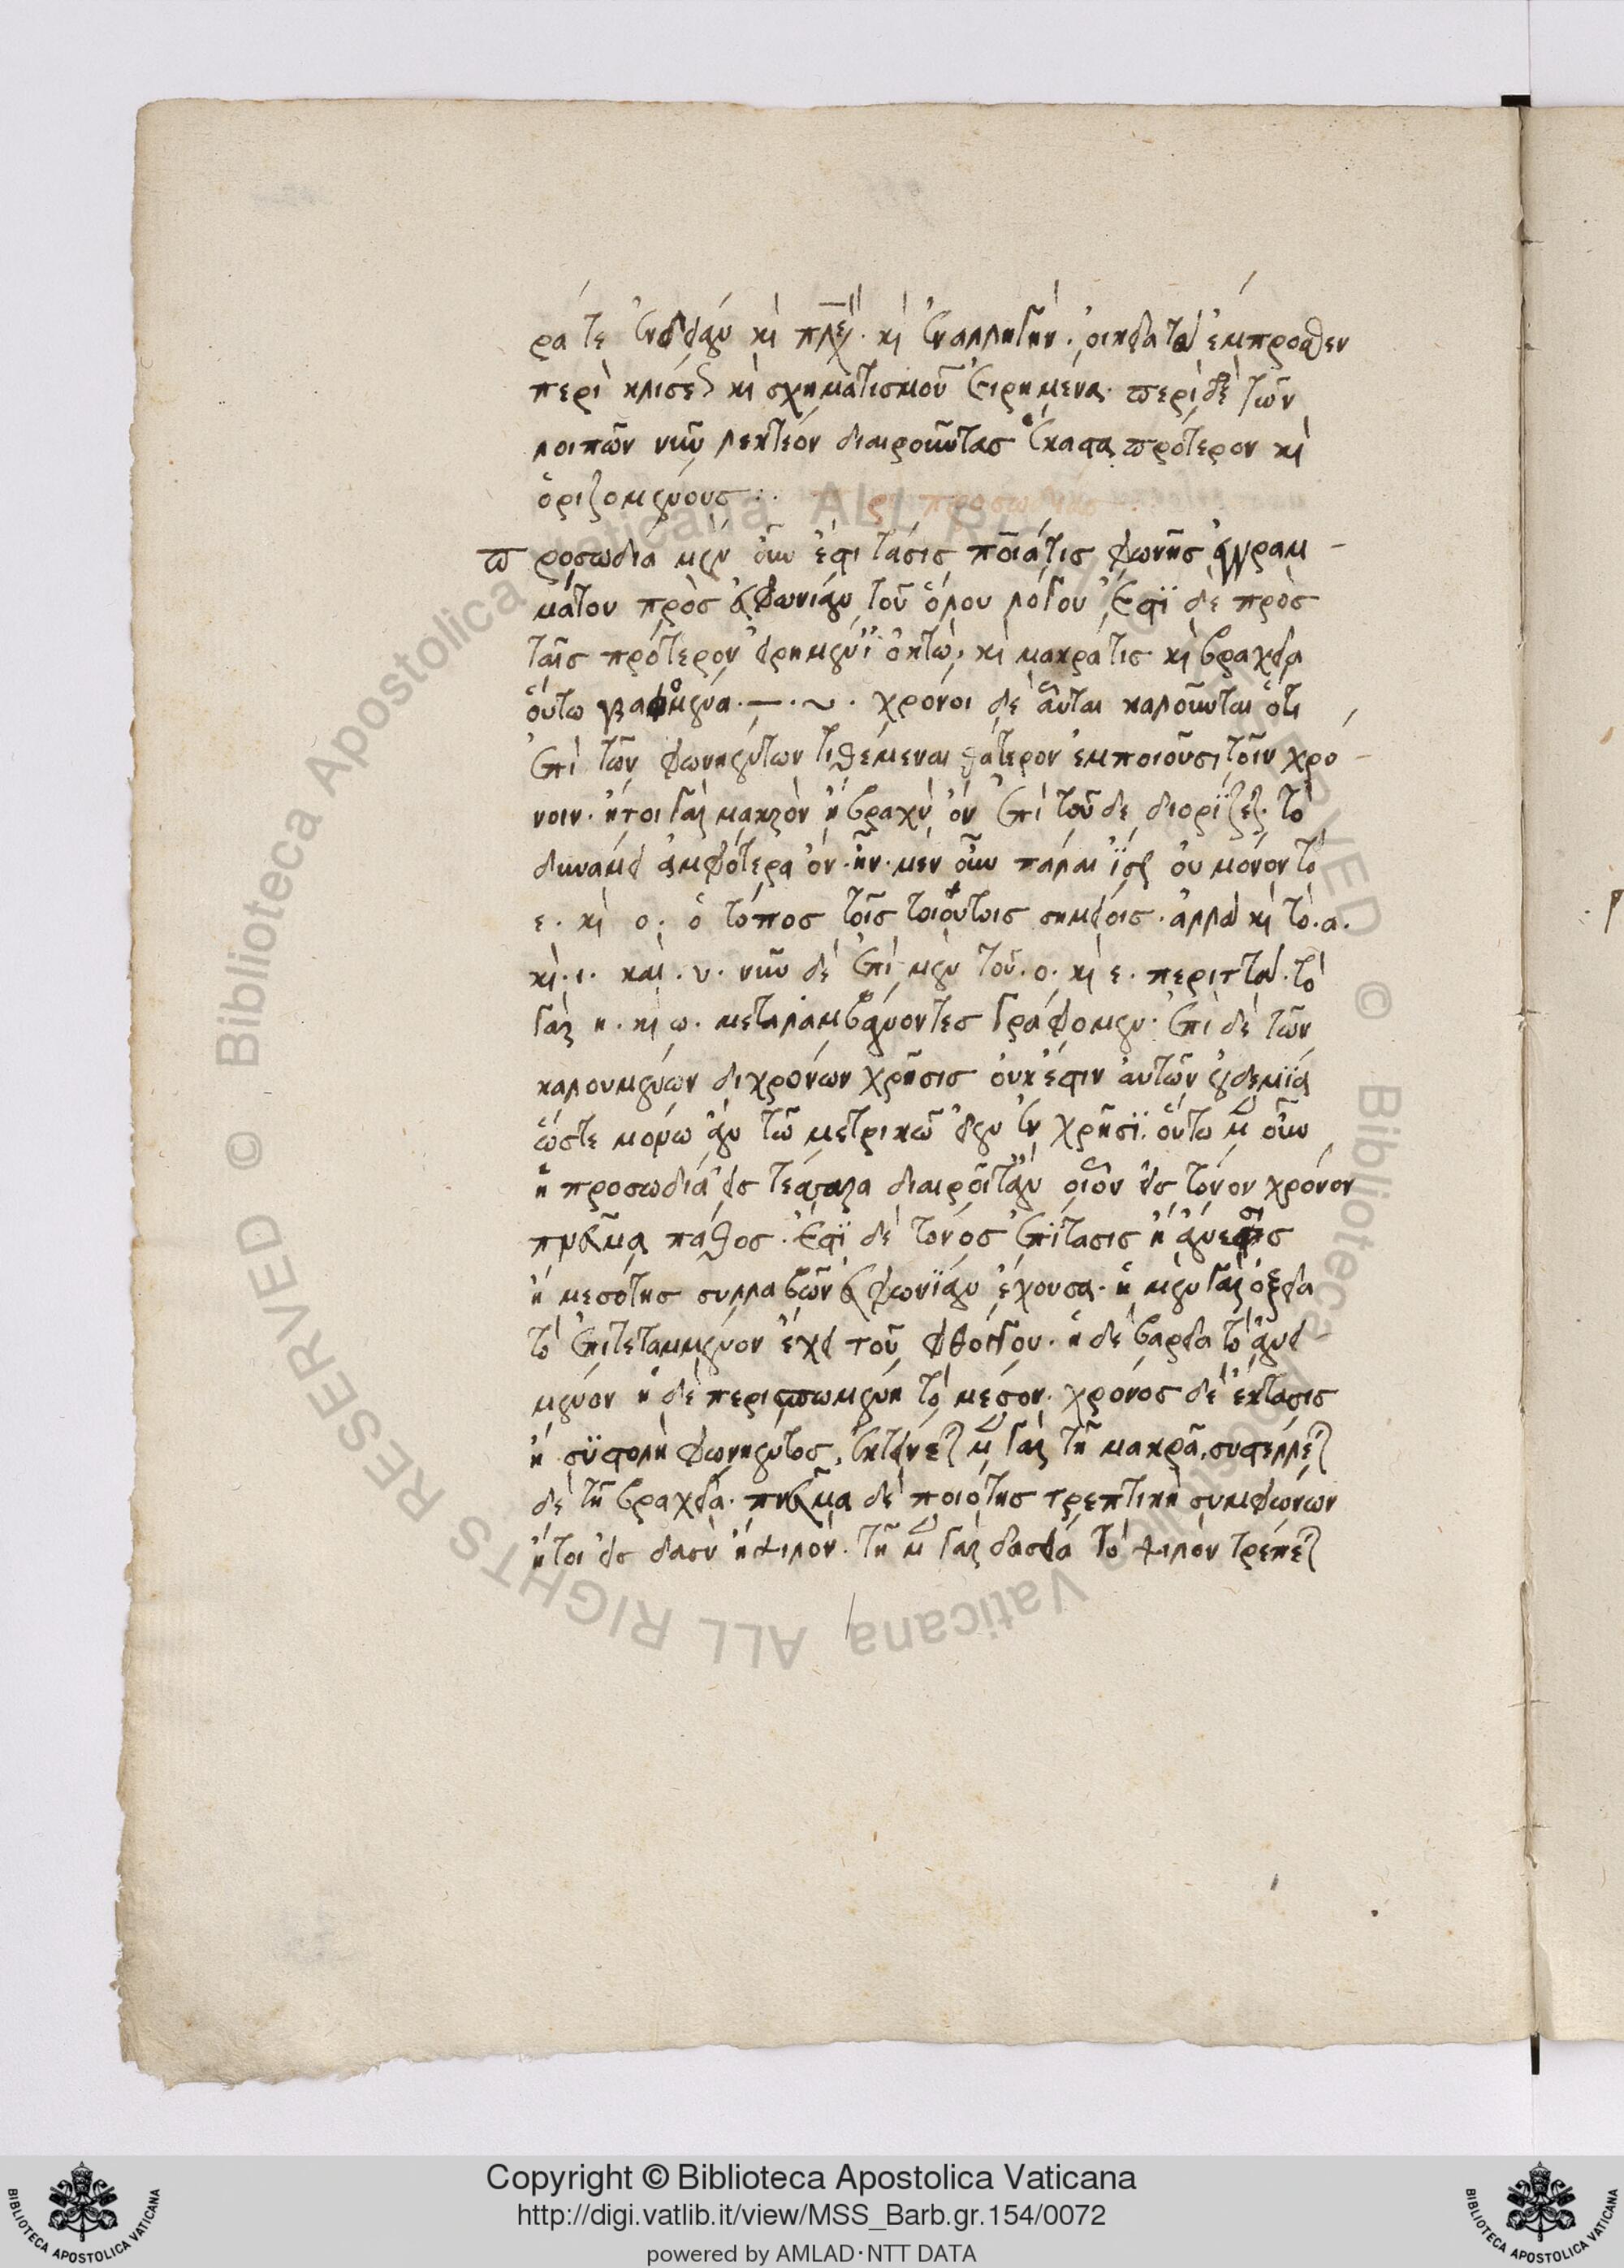 ρά τε ἐνδείαν κὶ πλε. κὶ ἐναλλαγὴν. οἰκεῖα τὰ ἔμπροσθεν
περὶ κλίσεως κὶ σχηματισμοῦ εἰρημένα. περὶ δὲ τῶν
λοιπῶν νῦν λεκτέον διαιροῦντας ἕκαστα πρότερον κὶ
ὁριζομένους :.
περὶ προσωδίας
προσωδία μὲν οὖν ἐστὶ τάσις ποιά τις φωνῆς ἐγγραμ-
μάτου πρὸς εὐφωνίαν τοῦ ὅλου λόγου. ἔστι δὲ πρὸς
ταῖς πρότερον εἰρημέναι ὀκτὼ, κὶ μακρά τις κὶ βραχεῖα
οὕτω γραφόμενα. —. ~. χρόνοι δὲ αὗται καλοῦνται ὅτι
ἐπὶ τῶν φωνηέντων τιθέμεναι θάτερον ἐμποιοῦσι τοῖν χρό-
νοιν. ἤτοι γὰρ μακρὸν ἢ βραχὺ ὂν ἐπὶ τοῦδε διορίζεται. τὸ
δυνάμει ἀμφότερα ὄν. ἦν. μὲν οὖν πάλαι ἴσως οὐ μόνον τὸ
ε. κὶ ο. ὁ τόπος τοῖς τοιούτοις σημείοις. ἀλλὰ κὶ τὸ. α.
κὶ. ι. καὶ. υ. νῦν δὲ ἐπὶ μὲν τοῦ. ο. κὶ ε. περιττὰ. τὸ
γὰρ η. κὶ ω. μεταλαμβάνοντες γράφομεν. ἐπὶ δὲ τῶν
καλουμένων διχρόνων χρῆσις οὐκ ἔστιν αὐτῶν οὐδεμία
ὥστε μόνω ἂν τῶ μετρικῶ εἶεν ἐν χρήσει. οὕτω μὲν οὖν
ἡ προσωδία εἰς τέσσαρα διαιροῖτ' ἂν οἷον εἰς τόνον χρόνον
πνεῦμα πάθος. ἔστι δὲ τόνος ἐπίτασις ἢ ἄνεσις
ἢ μεσότης συλλαβῶν εὐφωνίαν ἔχουσα. ἡ μὲν γὰρ ὀξεῖα
τὸ ἐπιτεταμμένον ἔχει τοῦ φθόγγου. ἡ δὲ βαρεῖα τὸ ἀνει-
μένον ἡ δὲ περισπωμένη τὸ μέσον. χρόνος δὲ ἔκτασις
ἢ συστολὴ φωνήεντος. ἐκτείνεται μὲν γὰρ τῆ μακρᾶ. συστέλλεται
δὲ τῆ βραχεία. πνεῦμα δὲ ποιότης τρεπτικὴ συμφώνων
ἤτοι εἰς δασὺ ἢ ψιλόν. τῆ μὲν γὰρ δασεία τὸ ψιλὸν τρέπεται
Copyright © Biblioteca Apostolica Vaticana
http://digi.vatlib.it/view/MSS_Barb.gr.154/0072
powered by AMLAD·NTT DATA